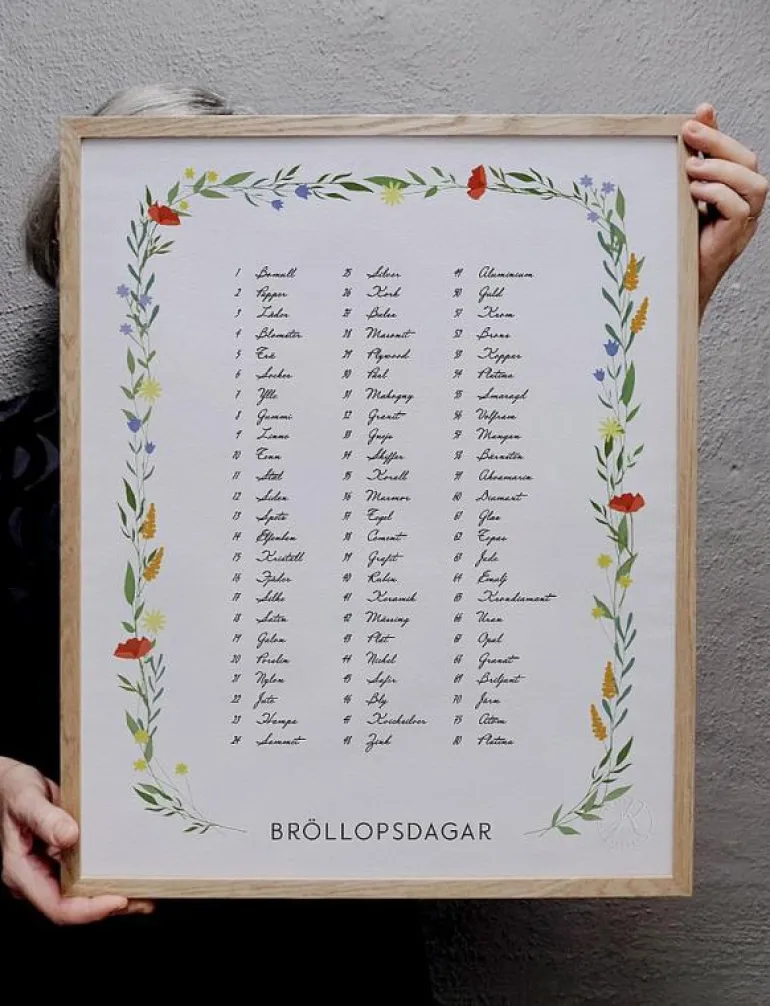 1 Bomull
2 Papper
3 Läder
4 Blomster
5 Trä
6 Socker
7 Ylle
8 Gummi
9 Linne
10 Tenn
11 Stål
12 Siden
13 Spets
14 Elfenben
15 Kristall
16 Fjäder
17 Silke
18 Satin
19 Galon
20 Porslin
21 Nylon
22 Jute
23 Hampa
24 Sammet
25 Silver
26 Kork
27 Balsa
28 Masonit
29 Plywood
30 Pärl
31 Mahogny
32 Granit
33 Gnejs
34 Skiffer
35 Korall
36 Marmor
37 Tegel
38 Cement
39 Grafit
40 Rubin
41 Keramik
42 Mässing
43 Plåt
44 Nickel
45 Safir
46 Bly
47 Kvicksilver
48 Zink
49 Aluminium
50 Guld
51 Krom
52 Brons
53 Koppar
54 Platina
55 Smaragd
56 Volfram
57 Mangan
58 Bärnsten
59 Akvamarin
60 Diamant
61 Glas
62 Topas
63 Jade
64 Emalj
65 Krondiamant
66 Uran
67 Opal
68 Granat
69 Briljant
70 Järn
75 Atom
80 Platina
BRÖLLOPSDAGAR